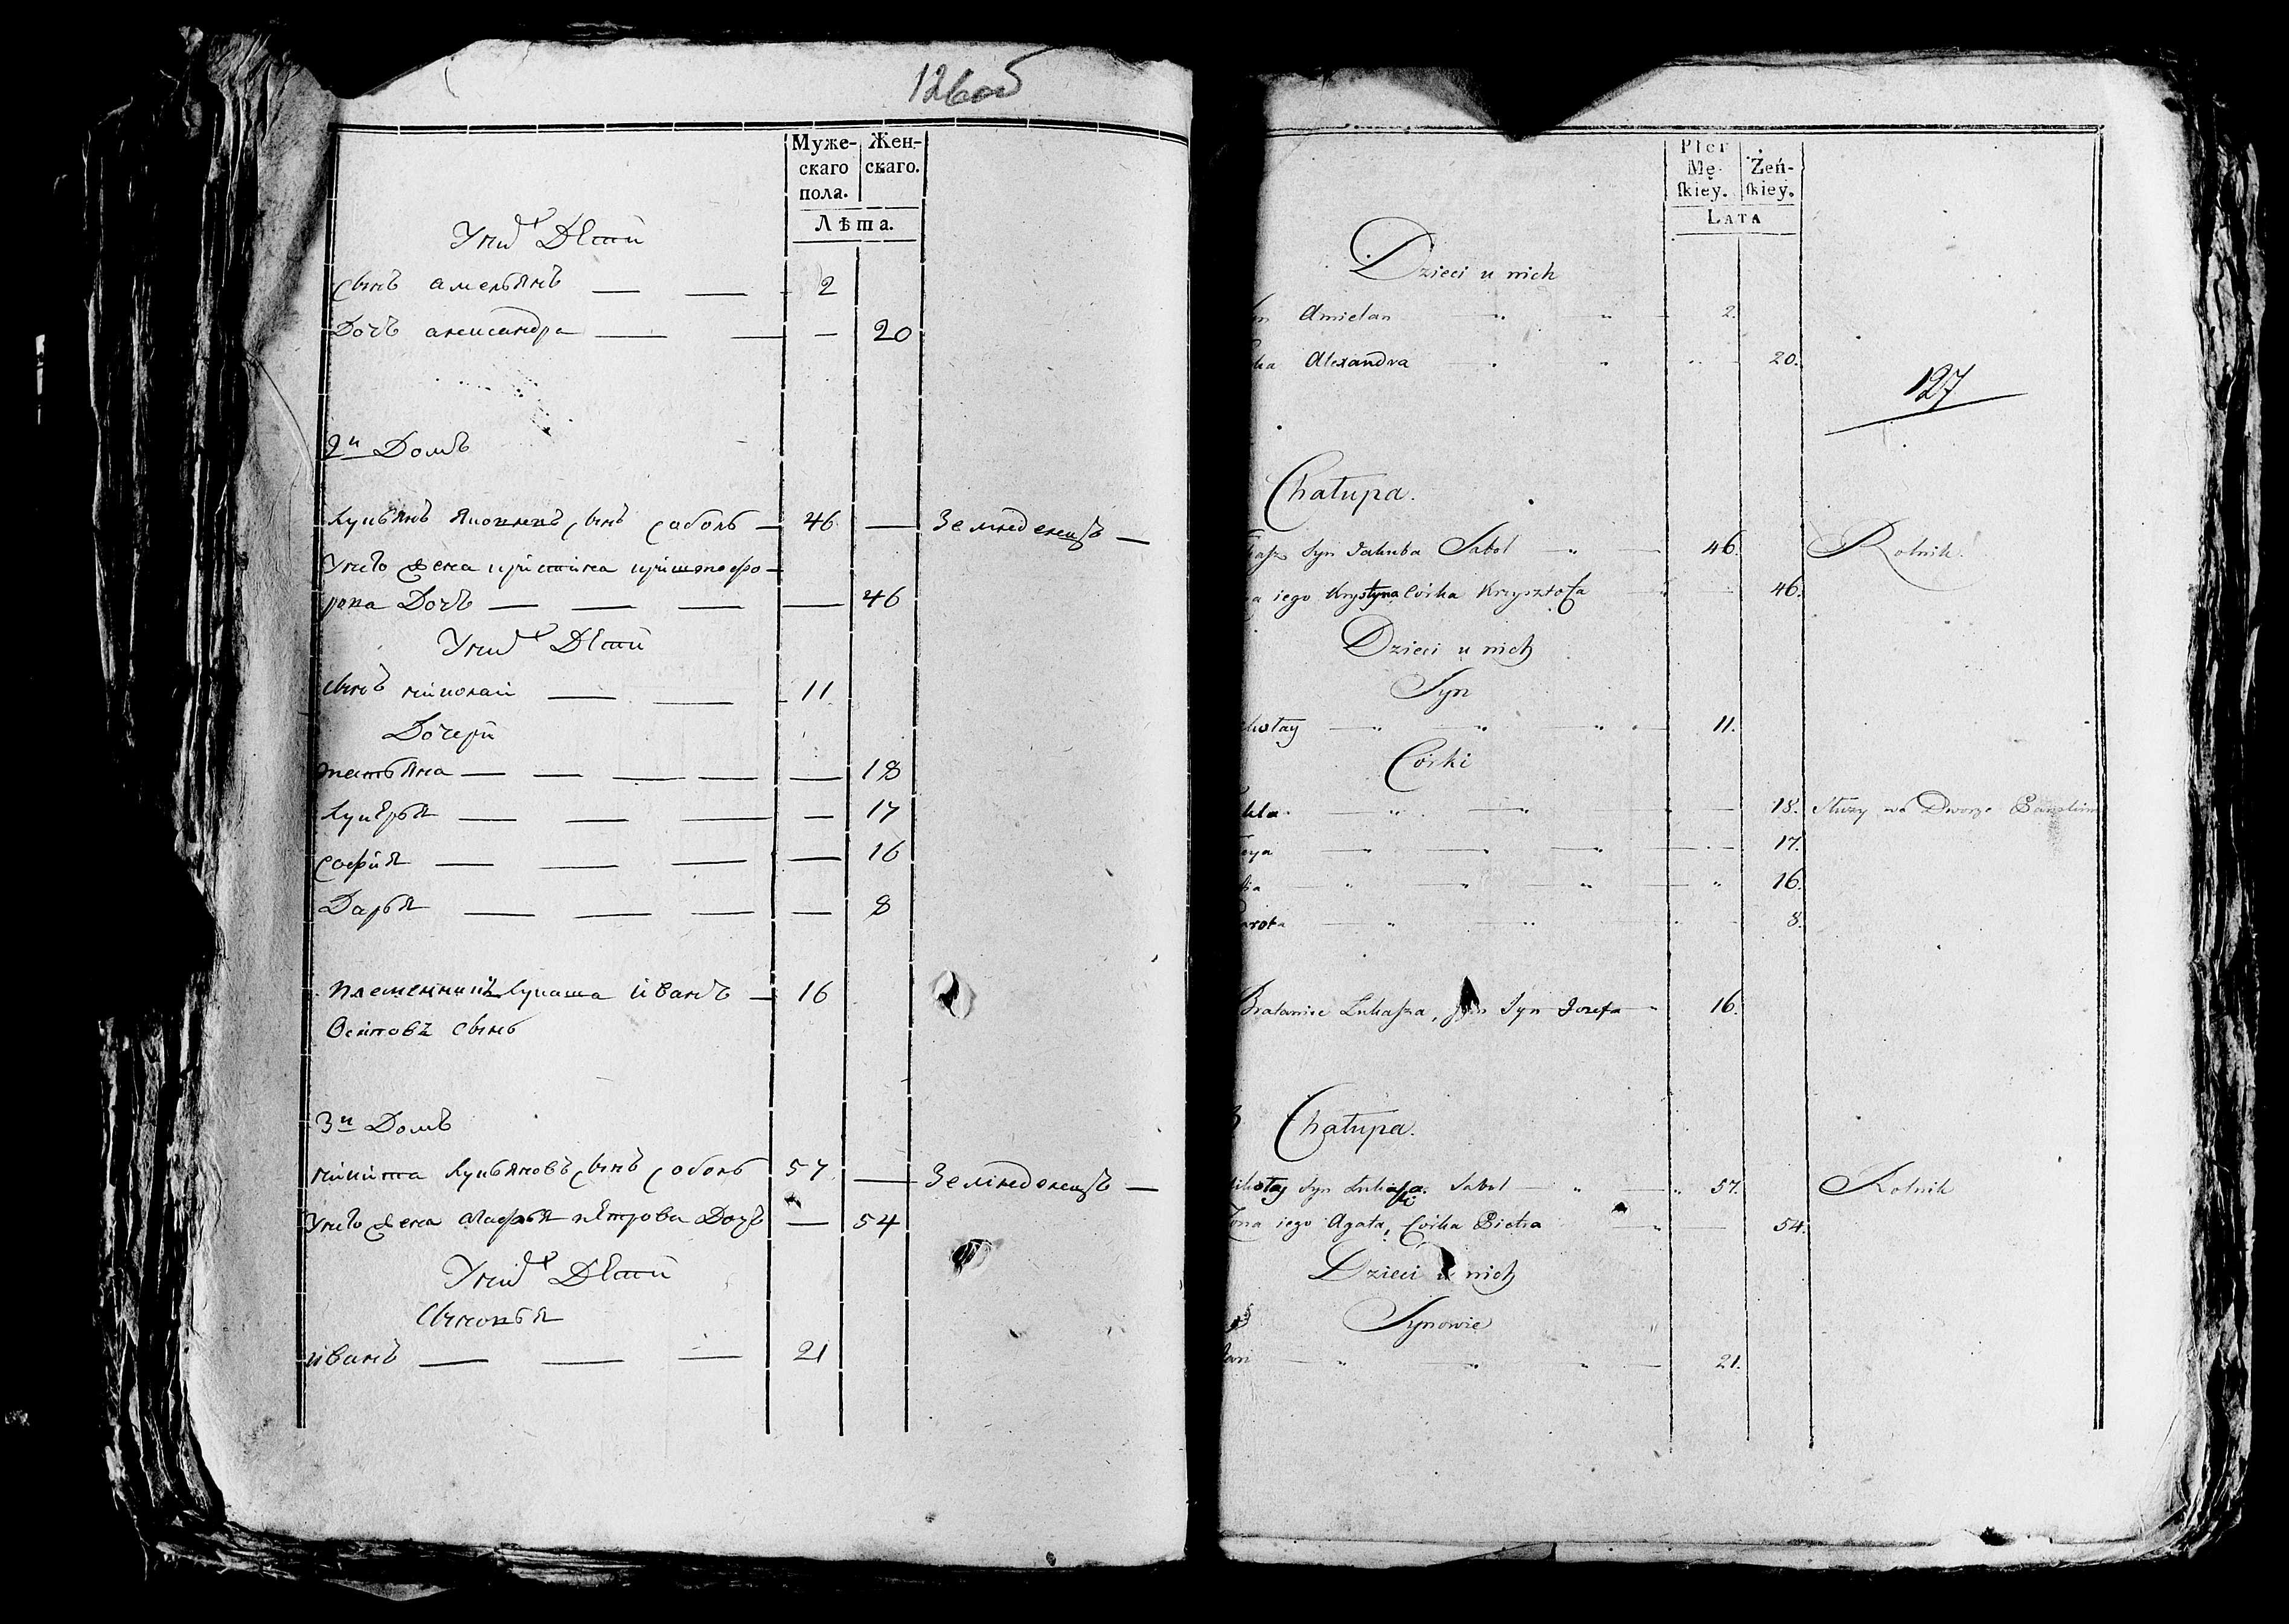 126 об
Муже- Жен-
скаго скаго.
пола.
Лѣта.
У них Дети
сынъ амельянъ — — 2
Дочь александра — — — 20
2й Домъ
Лукьянъ Яковлевъ сынъ соболь — 46 — Земледелецъ —
У него жена кристина криштофо-
рова Дочь — — — — 46
У них Дети
сынъ николай — — 11
Дочери
татьяна — — — — — 18
Лукерья — — — — 17
софия — — — — 16
Дарья — — — — 8
Племенникъ Лукаша иванъ — 16
Осиповъ сынъ
3й Домъ
никита Лукьяновъ сынъ соболь 57 — Земледелецъ —
У него жена агафья петрова Дочь — 54
У них Дети
Сыновья
иванъ — — — 21
Płci
Mę- Żeń-
skiey. skiey.
LATA
Dzieci u nich
Amielan 2.
Alexandra 20.
127
Chałupa.
Syn Jakuba Sabol 46. Rolnik
iego Krystyna Córka Krzysztofa 46.
Dzieci u nich
Syn
11.
Córki
18. Służy we Dworze
17.
16.
8.
Bratanic Łukasza, Jan Syn Jozefa 16.
3 Chałupa.
Mikołay Syn Łukasza Sabol 57. Rolnik
Żona iego Agata, Córka Pietra 54.
Dzieci u nich
Synowie
Jan 21.